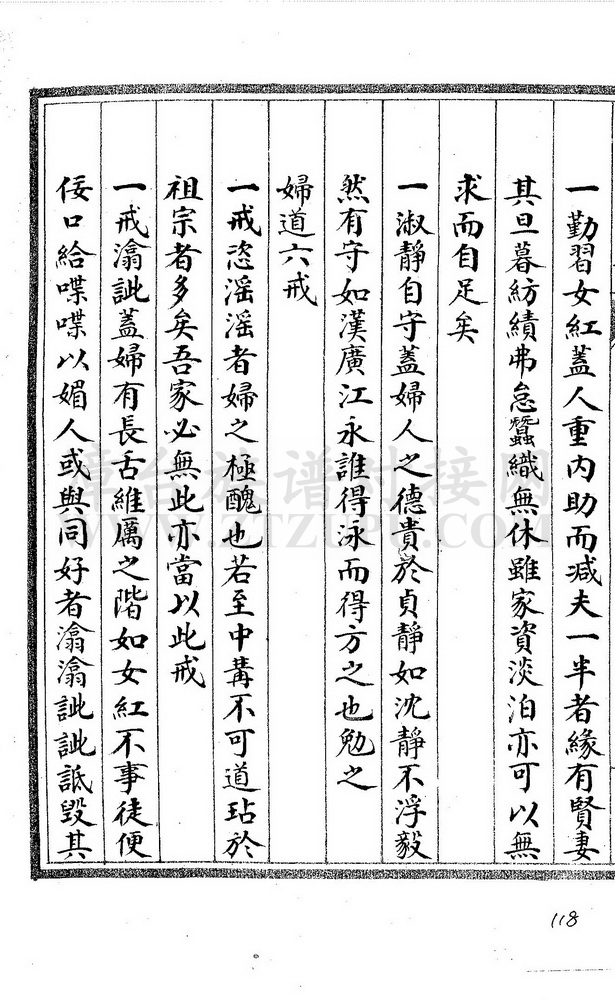 一勤習女紅蓋人重内助而减夫一半者緣有賢妻
其旦暮紡績弗怠蠶織無休雖家資淡泊亦可以無
求而自足矣
一淑靜自守蓋婦人之德貴於貞靜如沈靜不浮毅
然有守如漢廣江永誰得泳而得方之也勉之
婦道六戒
一戒恣滛滛者婦之極醜也若至中冓不可道玷於
祖宗者多矣吾家必無此亦當以此戒
一戒潝訿蓋婦有長舌維厲之階如女紅不事徒便
佞口給喋喋以媚人或與同好者潝潝訿訿詆毀其
漳台族谱对接网
WWW.ZTZUPU.COM
118